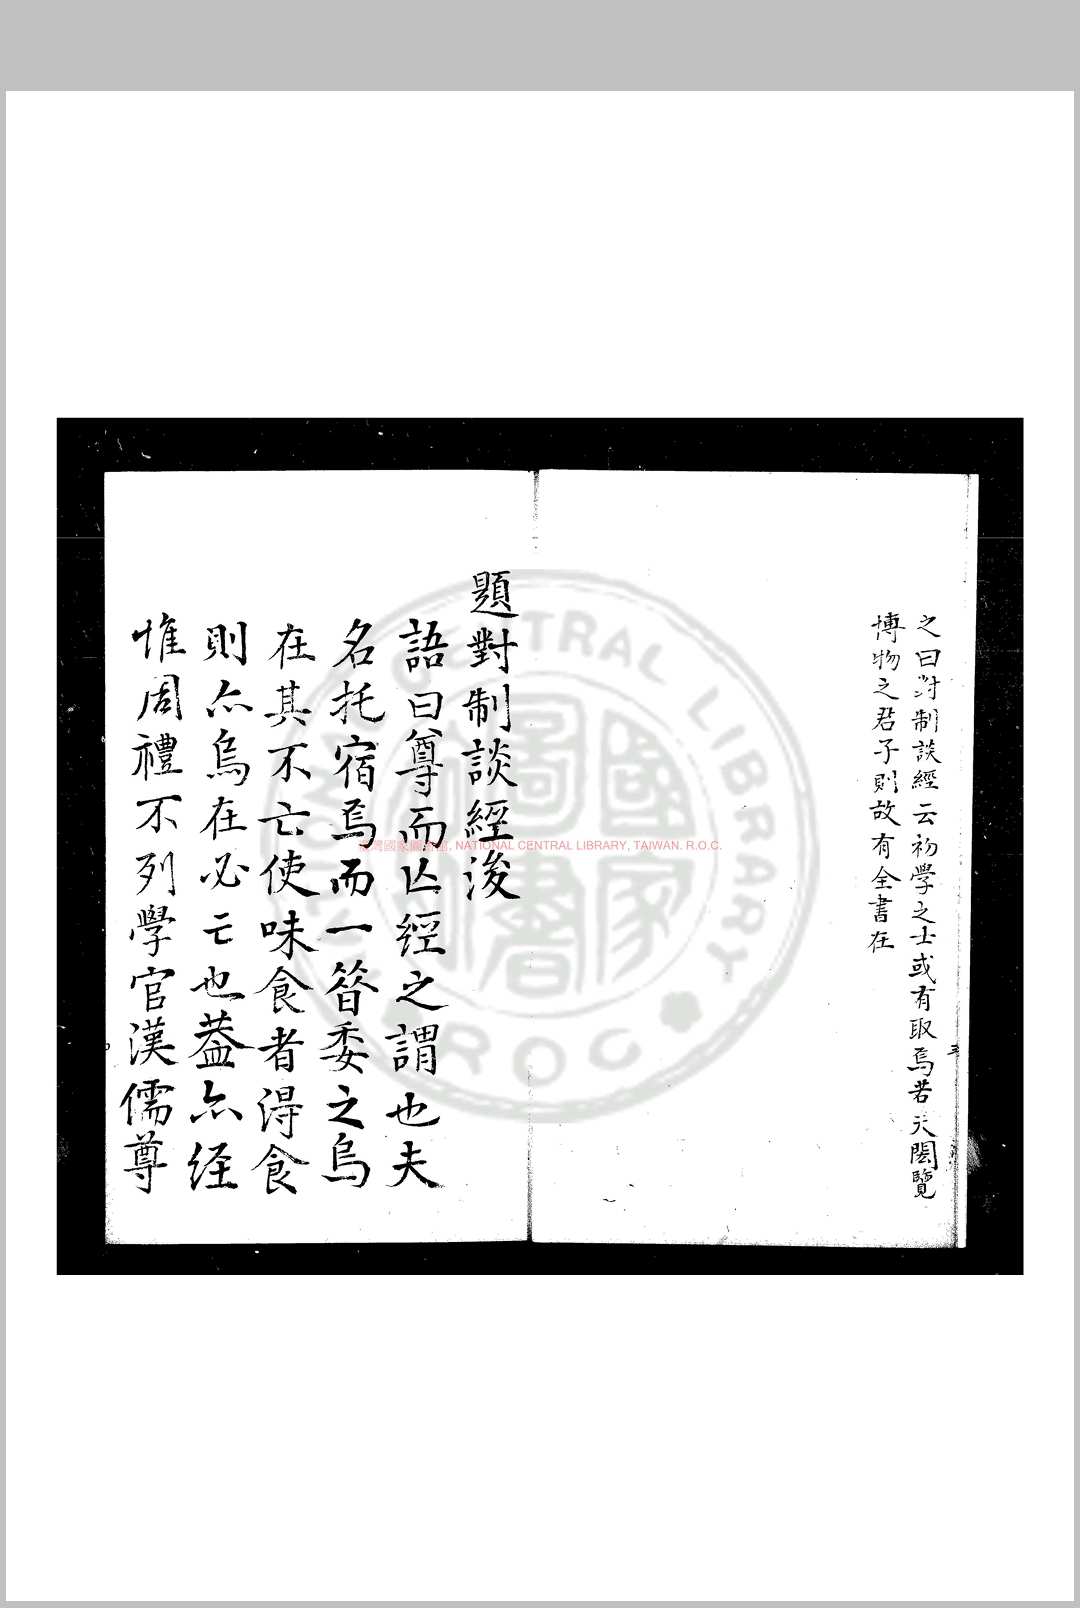 之曰對制談經云初學之士或有取焉若夫閎覽
博物之君子則故有全書在
題對制談經後
語曰尊而亾經之謂也夫
名托宿焉而一簮委之烏
在其不亡使味食者淂食
則亦烏在必亡也葢亦経
惟周禮不列學官漢儒尊
臺灣國家圖書館, NATIONAL CENTRAL LIBRARY, TAIWAN. R.O.C.
NATIONAL CENTRAL LIBRARY
ROC
國家圖書